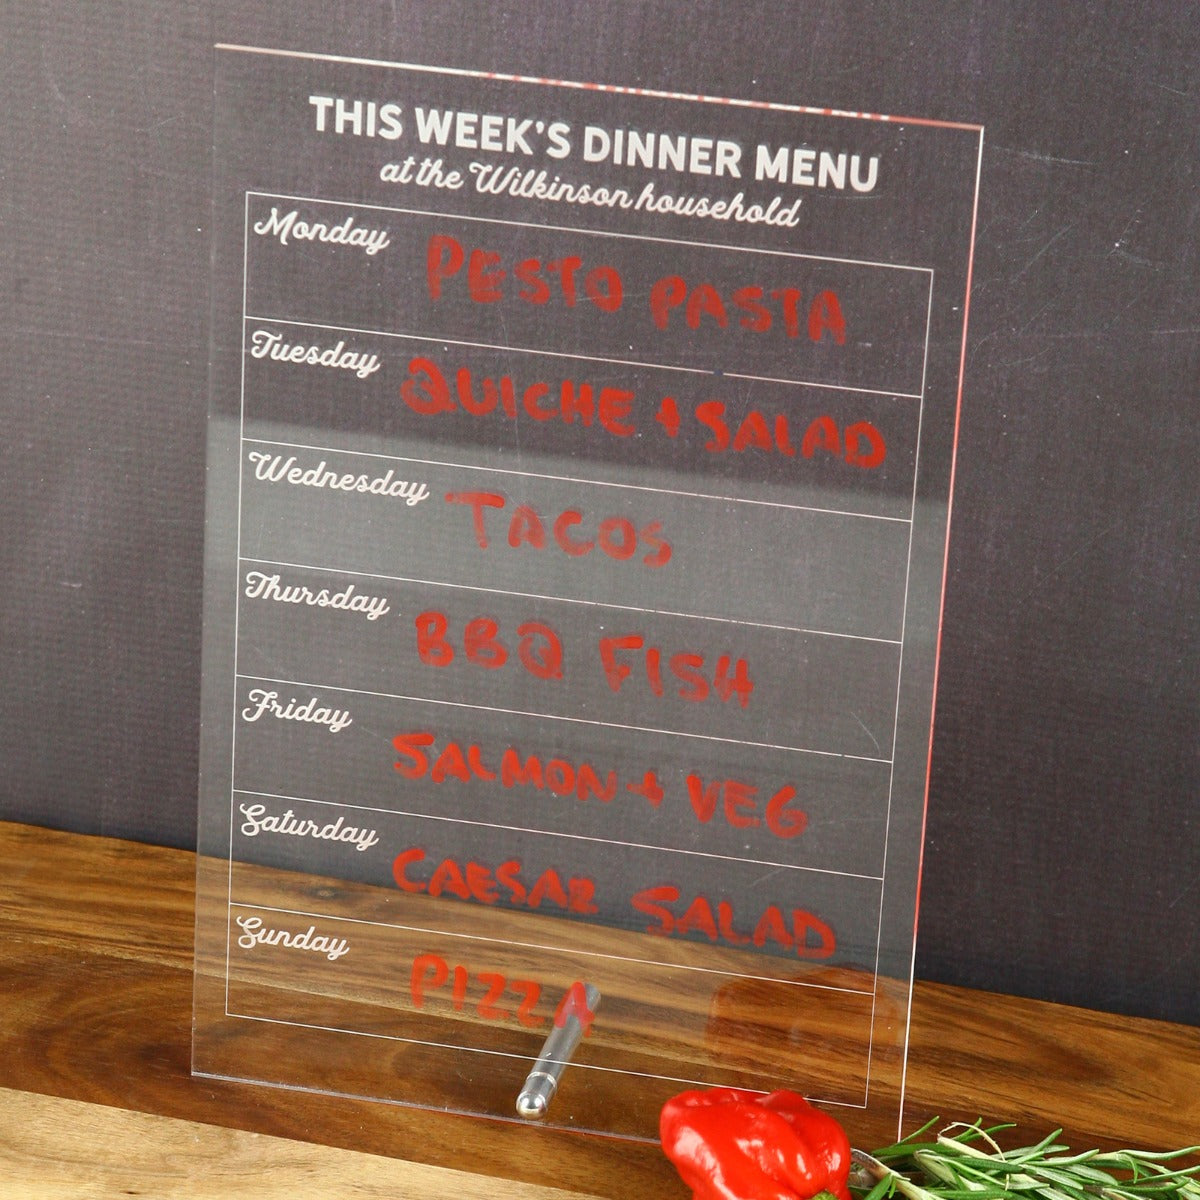 THIS WEEK'S DINNER MENU
at the Wilkinson household
Monday
PESTO PASTA
Tuesday
QUICHE + SALAD
Wednesday
TACOS
Thursday
BBQ FISH
Friday
SALMON + VEG
Saturday
CAESAR SALAD
Sunday
PIZZA